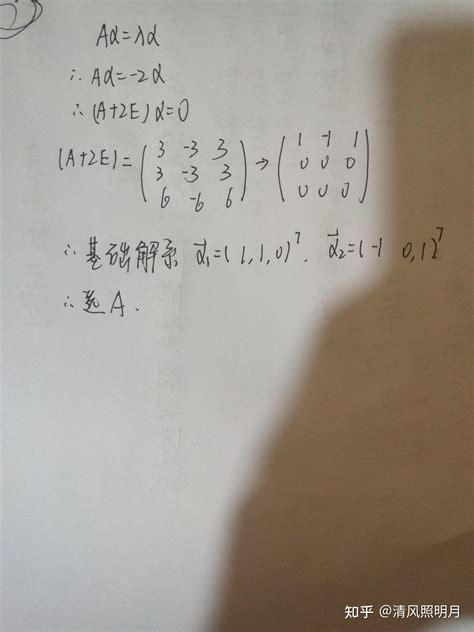 Aα=λα
∴ Aα=-2α
∴ (A+2E)α=0
(A+2E)=(3 -3 3
3 -3 3
6 -6 6) → (1 -1 1
0 0 0
0 0 0)
∴ 基础解系 α⃗₁=(1,1,0)ᵀ. α⃗₂=(-1 0,1)ᵀ
∴ 选 A.
知乎 @清风照明月